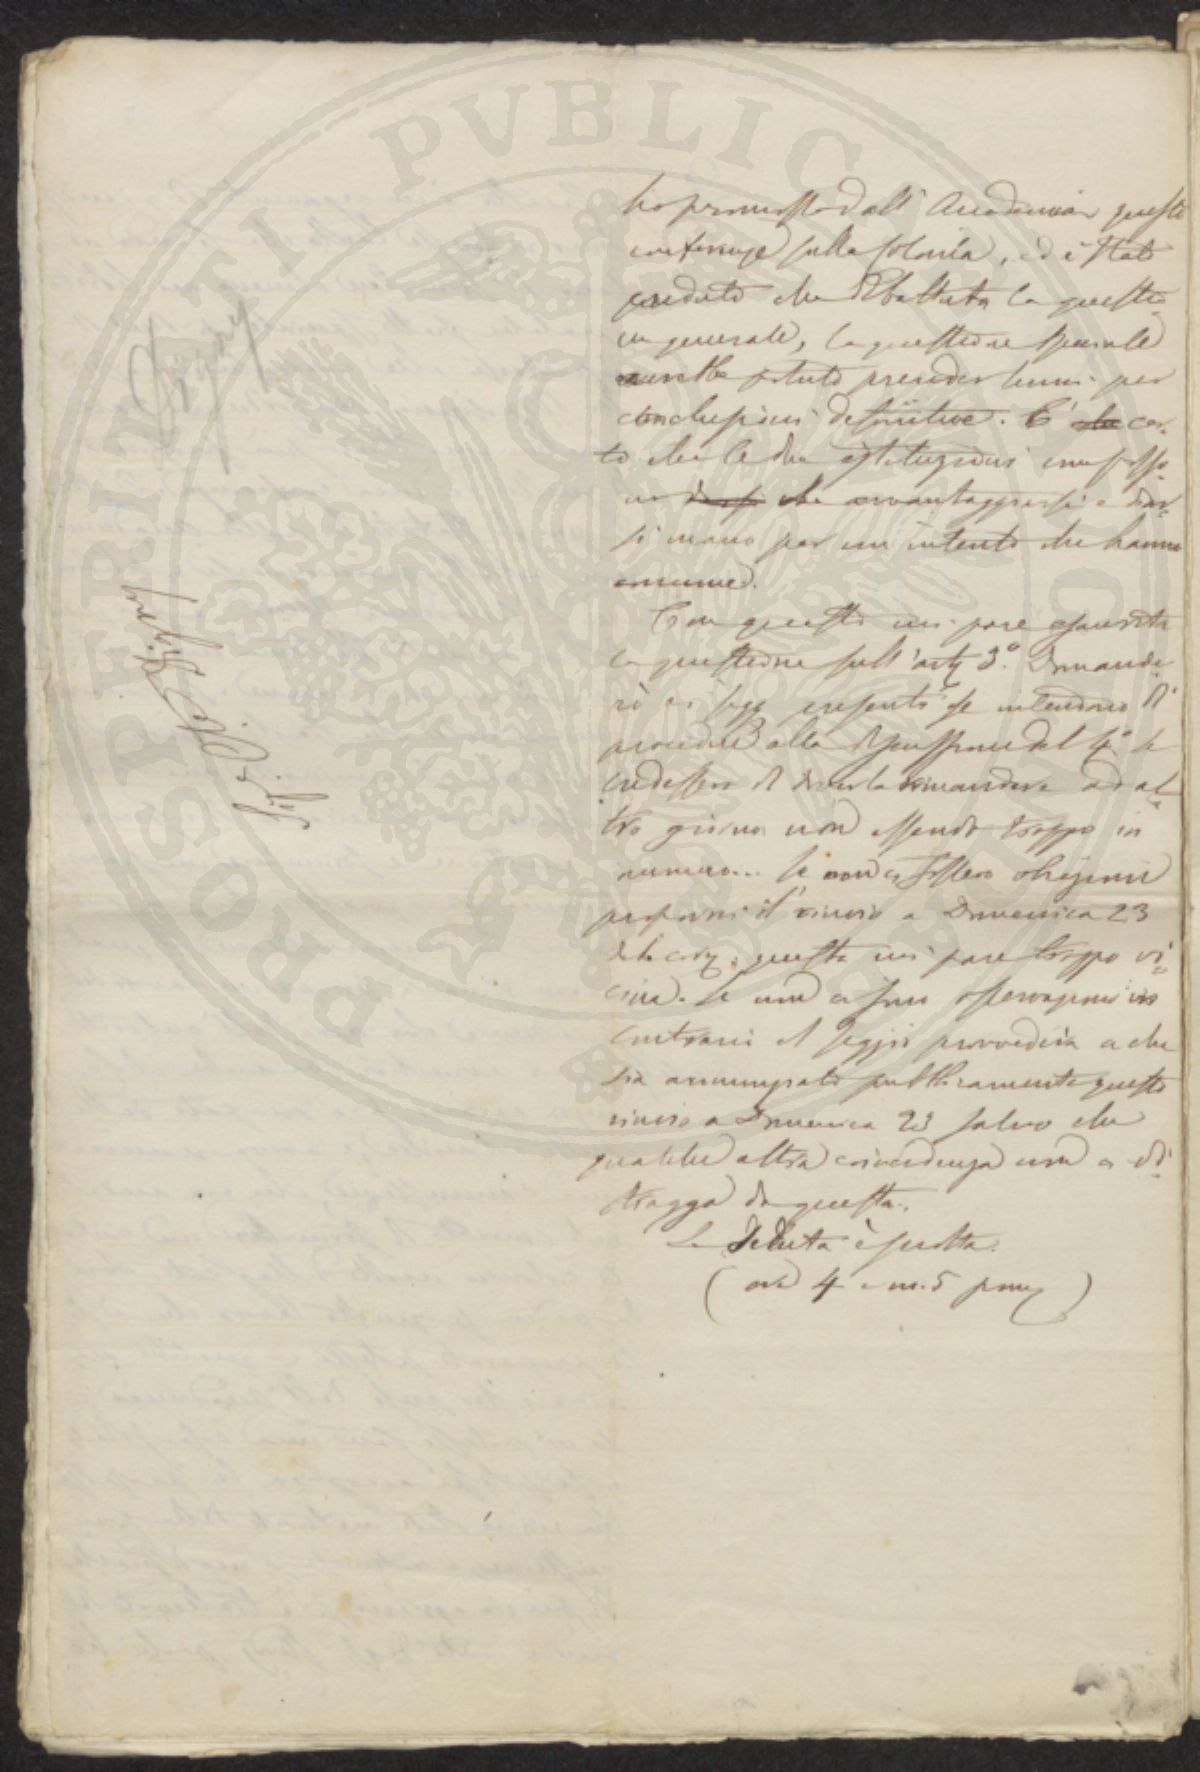 ho promosso dall' Accademia queste
conferenze sulla Colonìa, ed è stato
creduto che dibattuta la questio
in generale, la questione speciale
avrebbe potuto prender lumi per
conclusioni definitive. E' che cer-
to che le due istituzioni non posso-
no che avvantaggiarsi e dar-
si mano per un intento che hanno
comune.
Con questo mi pare esaurita
la questione sull' art 3.° Domande-
rò ai presenti se intendono di
procedere alla discussione del 4.° Se
credessero di doverla rimandare ad al-
tro giorno non essendo troppo in
numero... Se non ci fossero obiezioni
proporrei il rinvio a Domenica 23
del corr. questa mi pare troppo vi-
cina. Se non ci sono osservazioni in
contrario il seggio provvederà a che
sia annunziato pubblicamente questo
rinvio a Domenica 23 salvo che
qualche altra coincidenza non ci di-
stragga da questa.
La Seduta è sciolta.
(ore 4 e m. 5 pom)